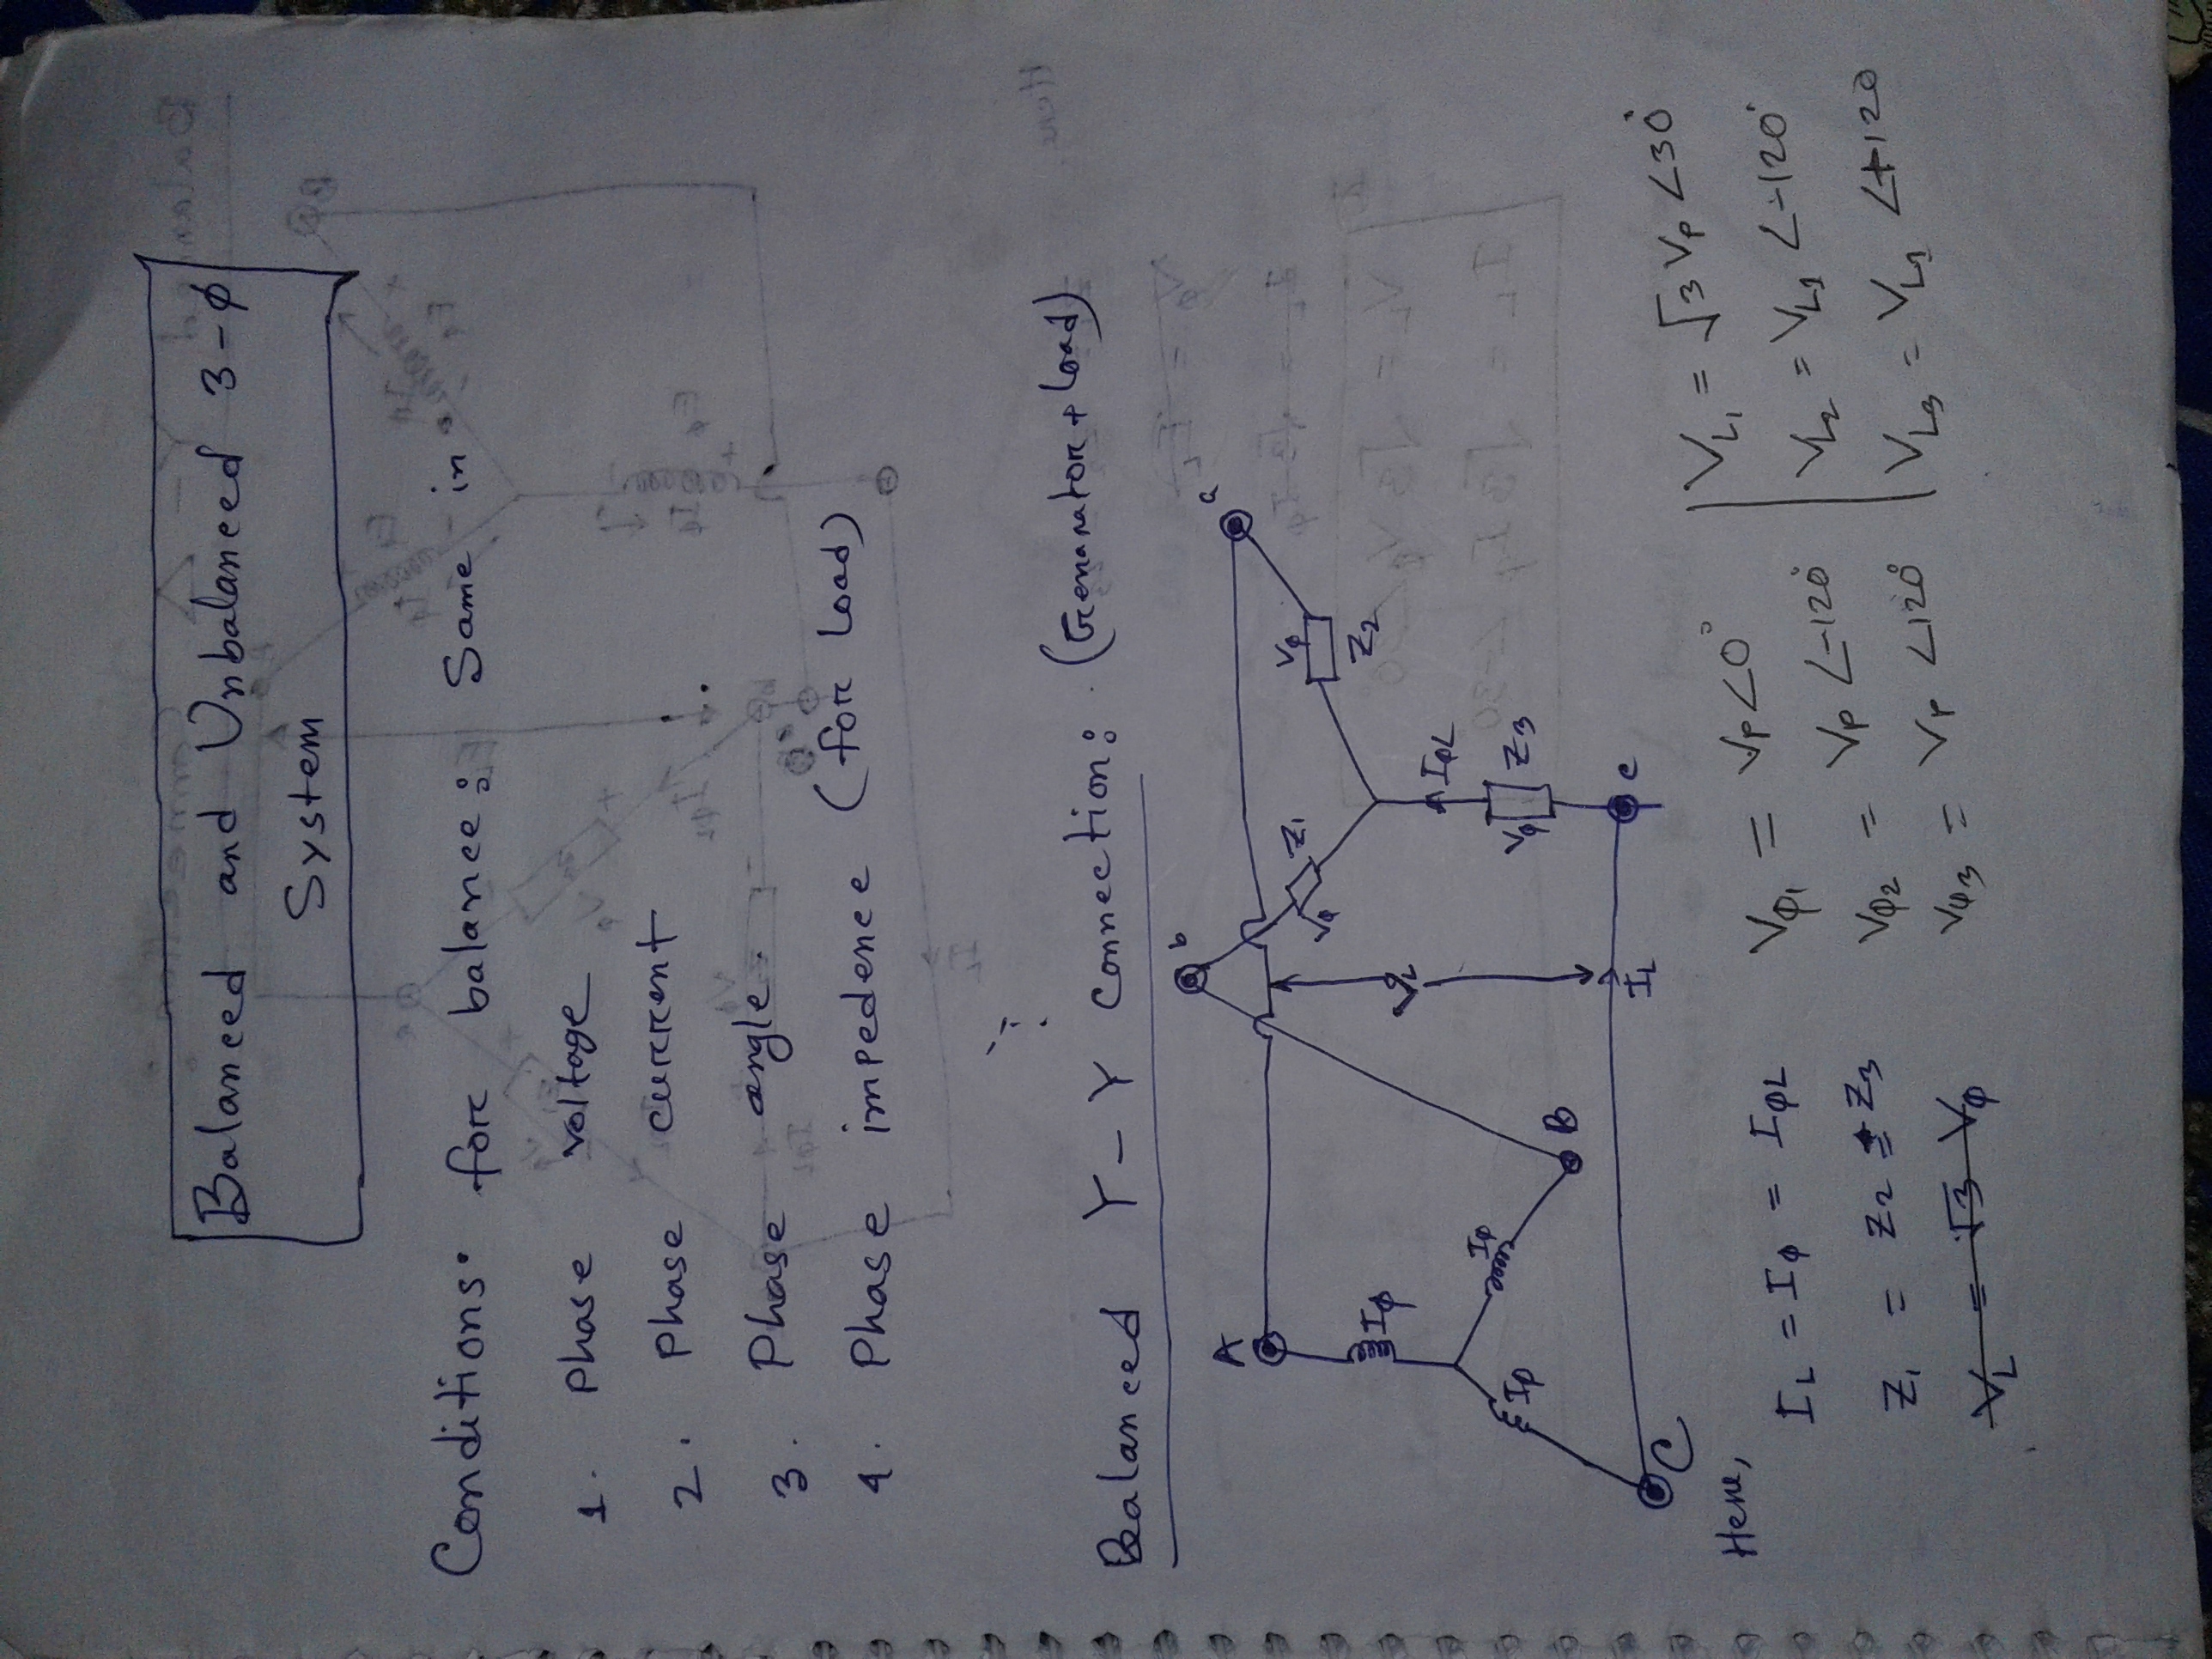 Balanced and Unbalanced 3-φ
System
Conditions for balance: Same in
1. Phase voltage
2. Phase current
3. Phase angle.
4. Phase impedence (for load)
Balanced Y-Y Connection: (Genarator + load)
b
a
A
Z₁
Vφ
Vφ
Z₂
Iφ
V_L
IφL
Iφ
Iφ
Vφ
Z₃
B
I_L
c
C
Here,
I_L = Iφ = IφL
Z₁ = Z₂ = Z₃
V_L = √3 Vφ
Vφ₁ = Vp∠0°
Vφ₂ = Vp∠-120°
Vφ₃ = Vp∠120°
V_L₁ = √3 Vp∠30°
V_L₂ = V_L₁∠-120°
V_L₃ = V_L₁∠+120